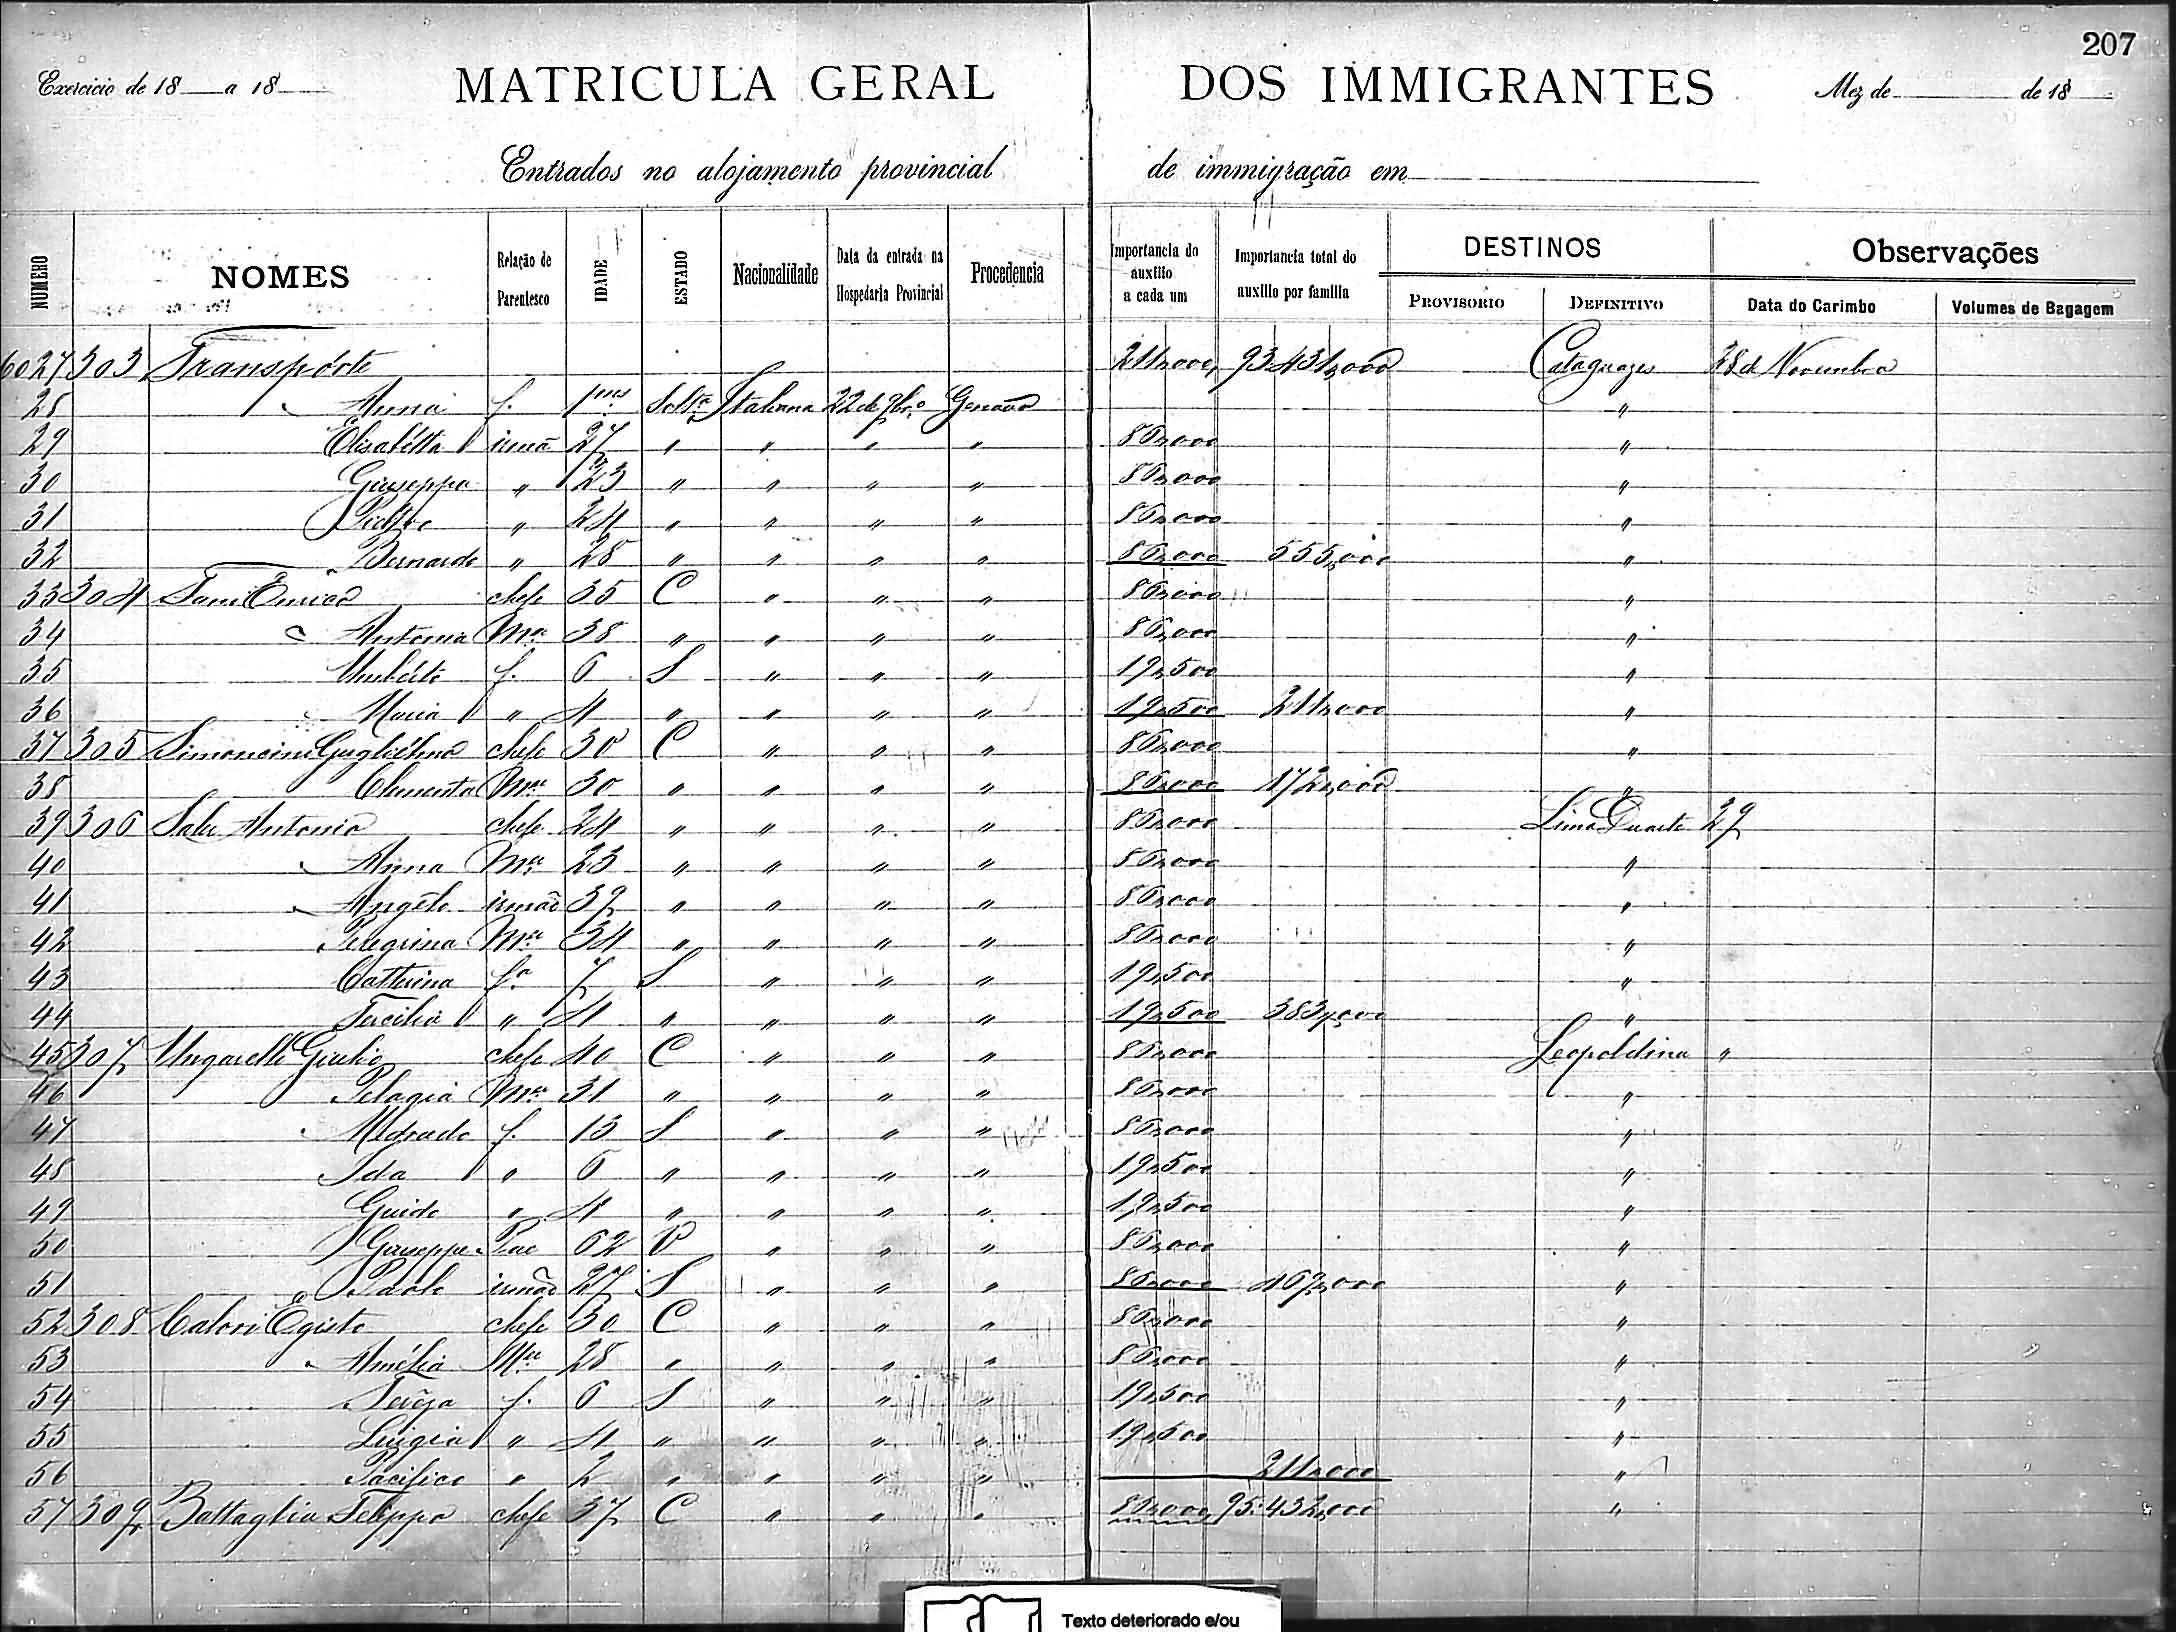 207
Exercicio de 18 a 18 MATRICULA GERAL DOS IMMIGRANTES Mez de de 18
Entrados no alojamento provincial de immigração em
NUMERO NOMES Relação de Parentesco IDADE ESTADO Nacionalidade Data da entrada na Hospedaria Provincial Procedencia Importancia do auxilio a cada um Importancia total do auxilio por familia DESTINOS PROVISORIO DEFINITIVO Observações Data do Carimbo Volumes de Bagagem
6027 303 Transpórte 211,000 93.431,000 Cataguazes 28 de Novembro
28 Anna f. 1 ms Soltª Italiana 22 de 9bro Genova "
29 Elisabétta irmã 27 " " " " 86,000 "
30 Giuseppa " 23 " " " " 86,000 "
31 Pietro " 24 " " " " 86,000 "
32 Bernardo " 28 " " " " 86,000 555,000 "
33 304 Tani Enrico chefe 35 C " " " 86,000 "
34 Antonia Mer 38 " " " " 86,000 "
35 Umbérto f. 6 S " " " 19,500 "
36 Maria " 4 " " " " 19,500 211,000 "
37 305 Simoncini Guglielmo chefe 30 C " " " 86,000 "
38 Clementa Mer 30 " " " " 86,000 172,000 "
39 306 Sala Antonio chefe 24 " " " " 86,000 Lima Duarte 29
40 Anna Mer 23 " " " " 86,000 "
41 Angélo irmão 39 " " " " 86,000 "
42 Peregrina Mer 34 " " " " 86,000 "
43 Catterina fª 7 S " " " 19,500 "
44 Tercilia " 4 " " " " 19,500 383,000 "
45 307 Ungarelli Giulio chefe 40 C " " " 86,000 Leopoldina "
46 Pelagia Mer 31 " " " " 86,000 "
47 Medardo f. 13 S " " " 86,000 "
48 Ida " 6 " " " " 19,500 "
49 Guido " 4 " " " " 19,500 "
50 Giuseppe Pae 62 V " " " 86,000 "
51 Paolo irmão 27 S " " " 86,000 469,000 "
52 308 Calori Egisto chefe 30 C " " " 86,000 "
53 Amélia Mer 28 " " " " 86,000 "
54 Teréza f. 6 S " " " 19,500 "
55 Luigia " 4 " " " " 19,500 "
56 Pacifico " 2 " " " " 211,000 "
57 309 Battaglia Felippo chefe 37 C " " " 86,000 95.432,000 "
Texto deteriorado e/ou